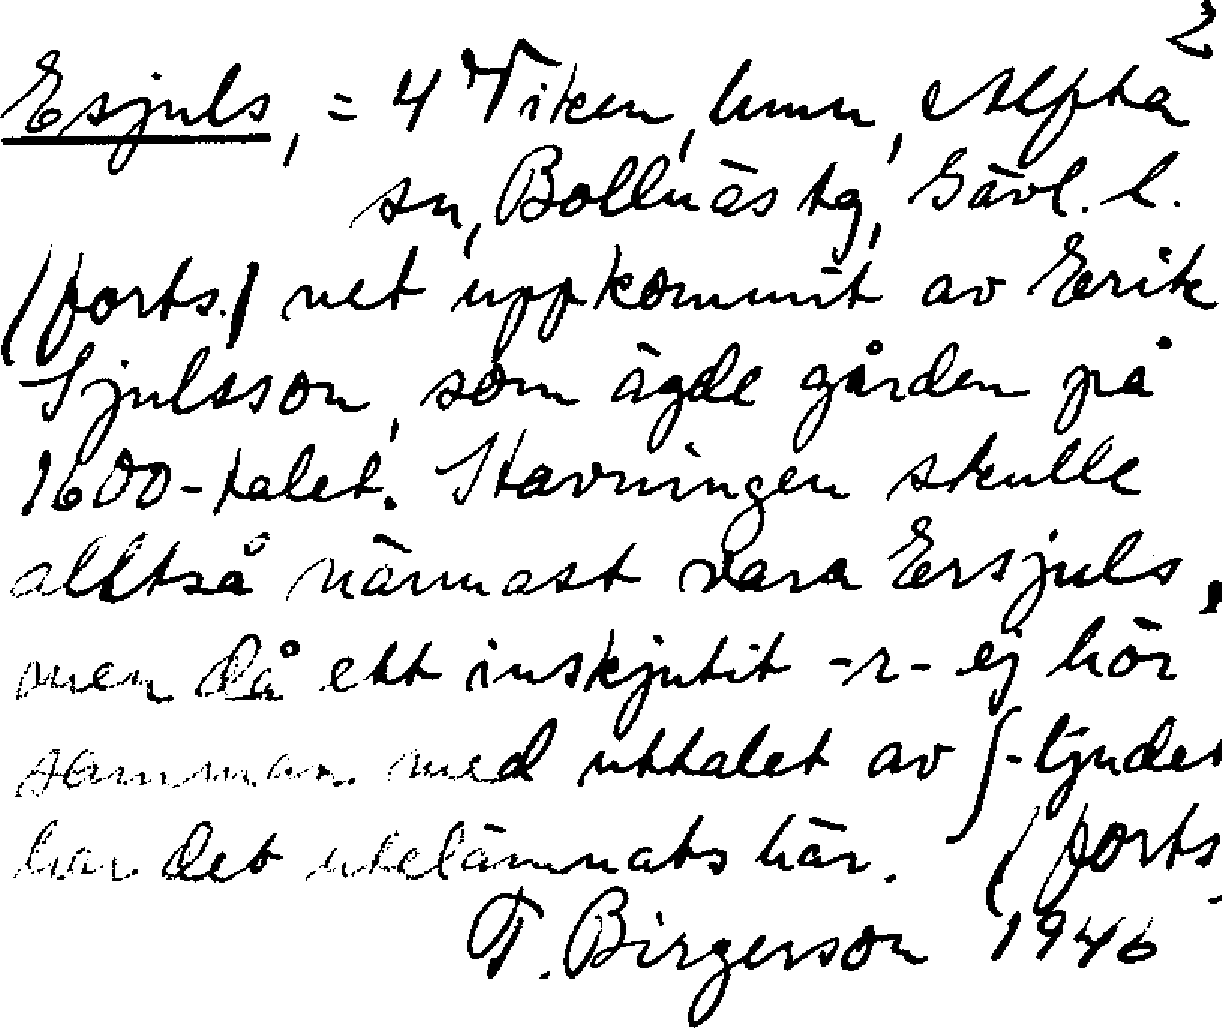 2
Esjuls, = 4 Viken, hmn, Alfta
sn, Bollnäs tg, Gävl. l.
(forts.) net uppkommit av Erik
Sjulsson, som ägde gården på
1600-talet. Stavningen skulle
alltså närmast vara Ersjuls,
men då ett inskjutit -r- ej hör
samman med uttalet av ʃ-ljudet
har det utelämnats här. (forts.
F. Birgerson 1946